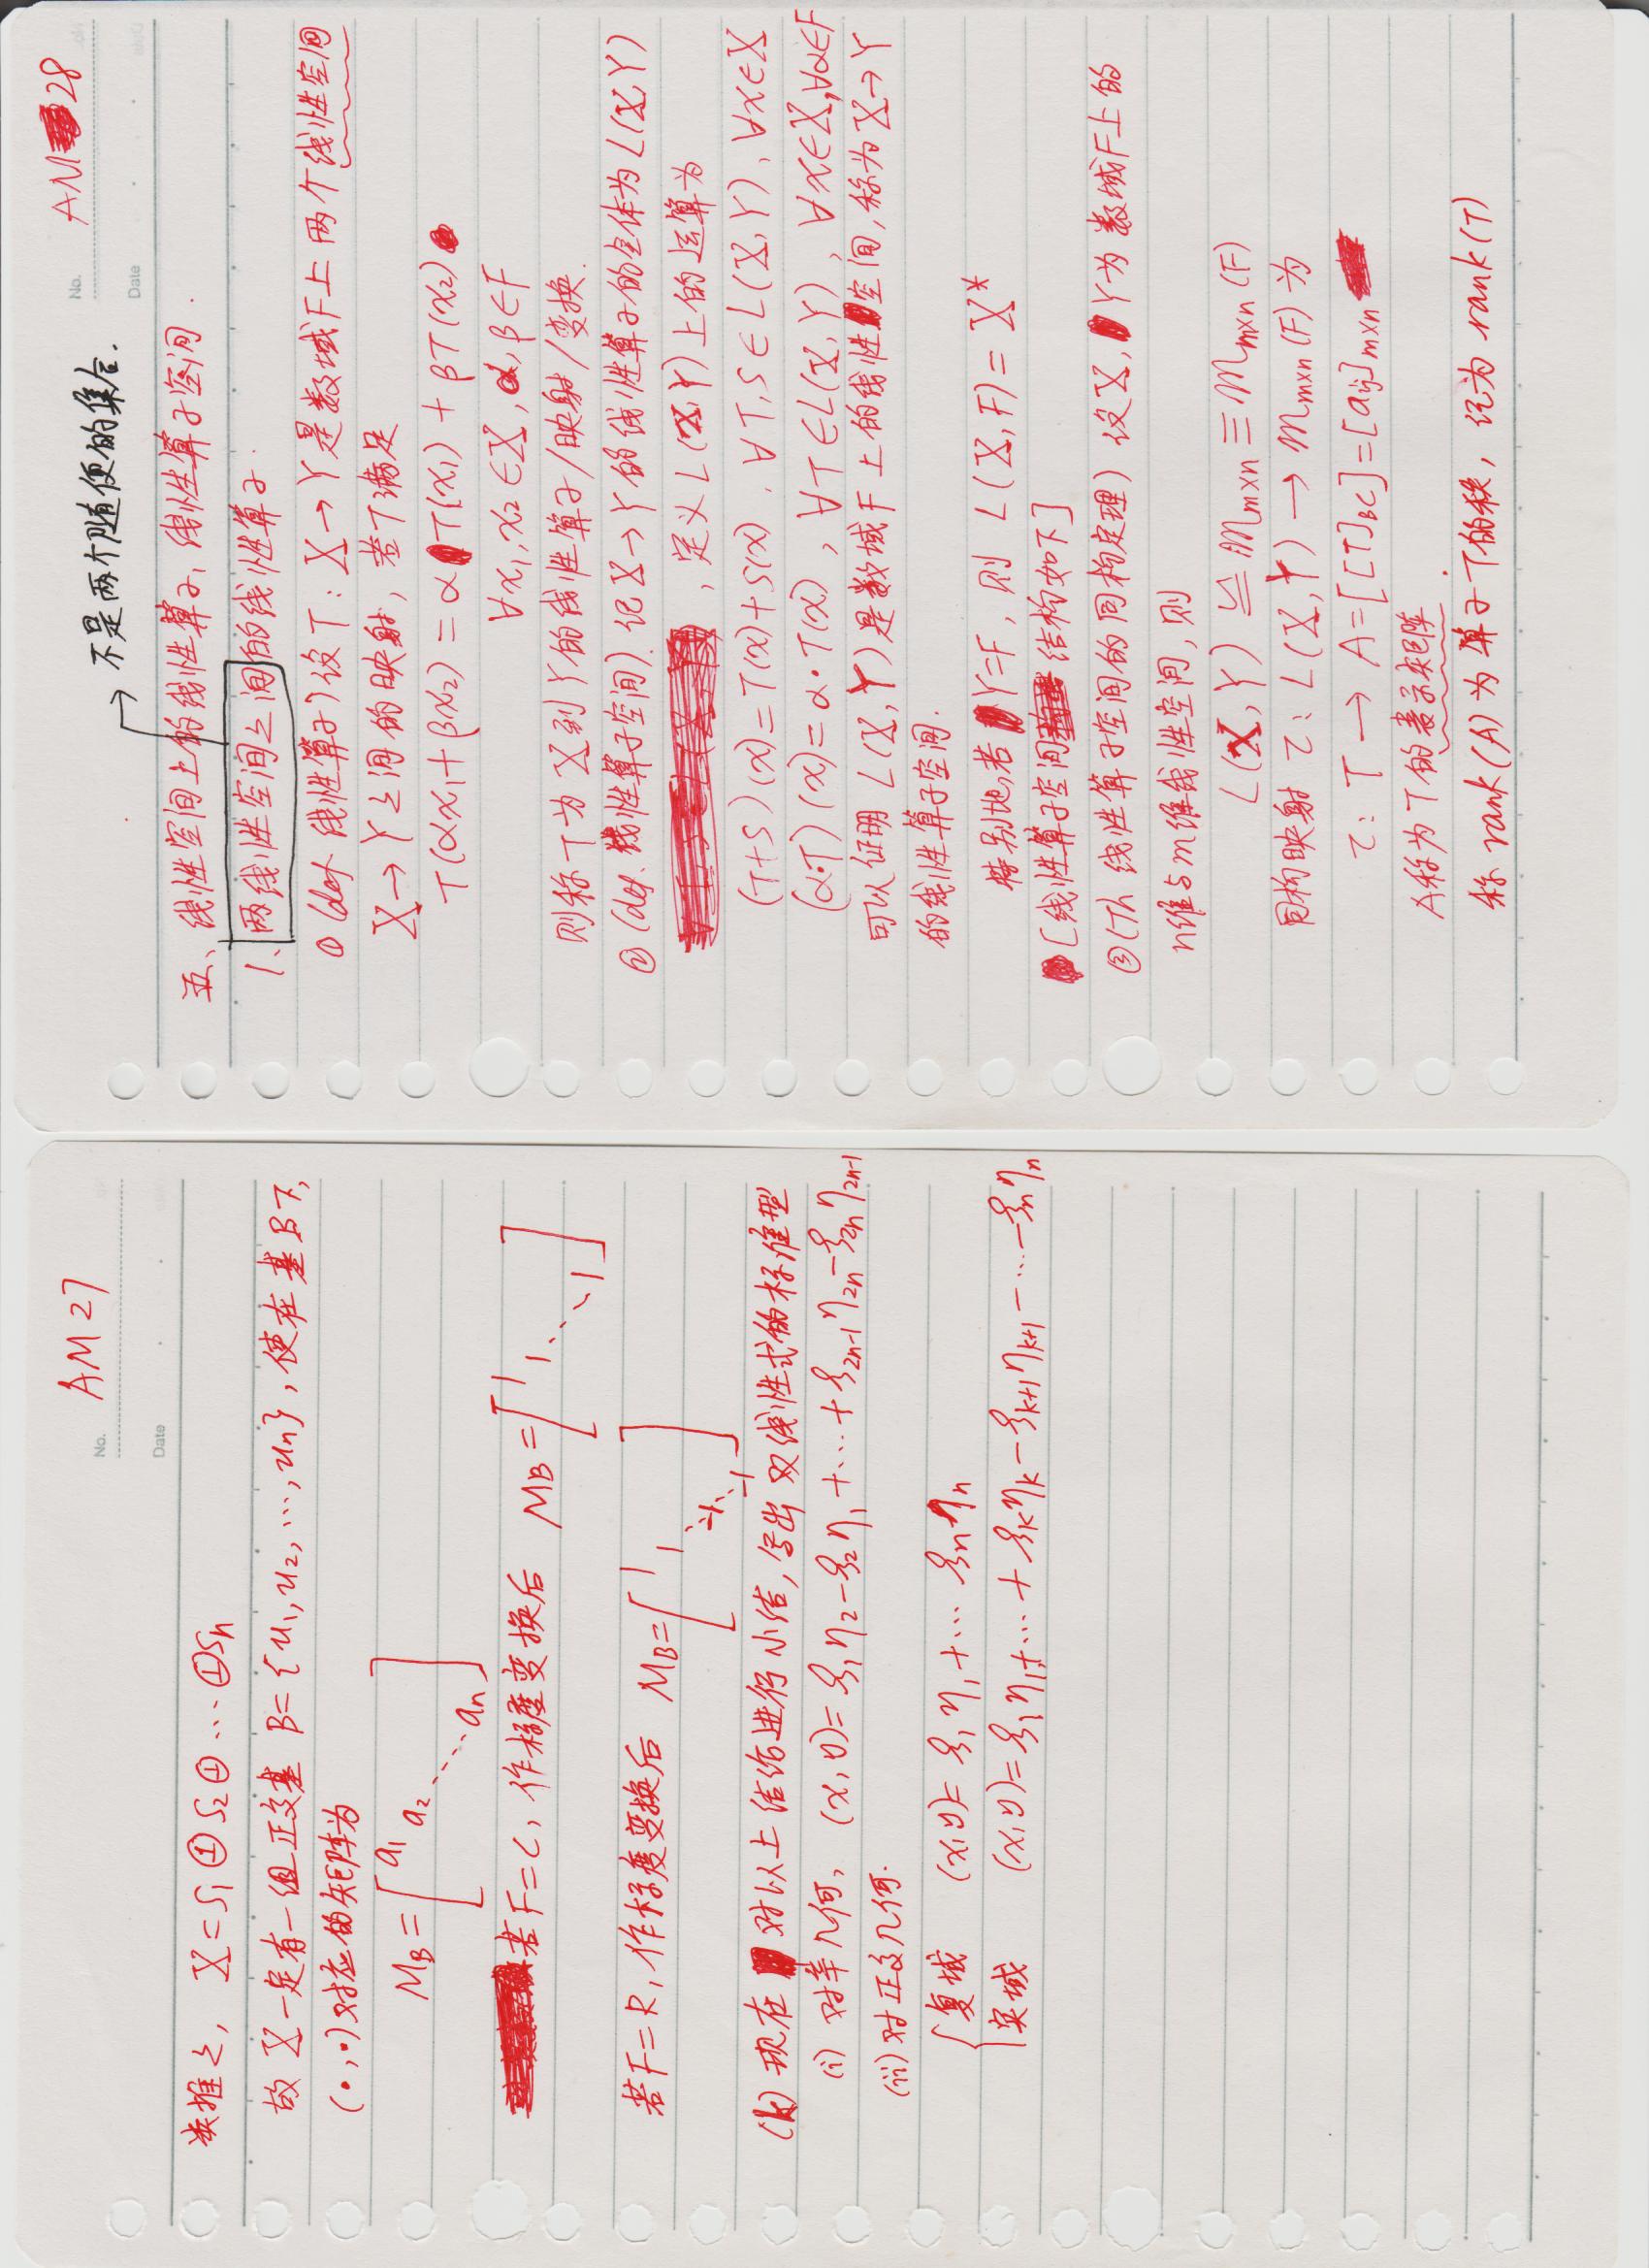 AM 27
No.
Date
类推之, X = S₁ ⊕ S₂ ⊕ … ⊕ Sn
故 X 一定有一组正交基 B = {u₁, u₂, …, un}, 使在基B下,
(•,•)对应的矩阵为
M_B = [a₁ a₂ ⋱ an]
若F=C, 作标度变换后 M_B = [1 1 ⋱ 1]
若F=R, 作标度变换后 M_B = [1 1 ⋱ -1 ⋱ -1]
(k) 现在对以上结论进行小结, 写出双线性式的标准型
(i) 对辛几何, (x,y) = ξ₁η₂ - ξ₂η₁ + … + ξ₂n-₁η₂n - ξ₂nη₂n-₁
(ii) 对正交几何.
复域 (x,y) = ξ₁η₁ + … ξnηn
实域 (x,y) = ξ₁η₁ + … + ξkηk - ξk+1ηk+1 - … - ξnηn
AM 28
No.
Date
不是两个随便的集合.
五、线性空间上的线性算子, 线性算子空间.
1、两线性空间之间的线性算子.
① (def 线性算子) 设 T: X → Y 是数域F上两个线性空间
X → Y 之间的映射, 若T满足
T(αx₁ + βx₂) = αT(x₁) + βT(x₂)
∀x₁, x₂ ∈ X, α, β ∈ F
则称 T 为 X 到 Y 的线性算子/映射/变换.
② (def. 线性算子空间). 记 X → Y 的线性算子的全体为 L(X,Y)
, 定义 L(X,Y) 上的运算为
(T+S)(x) = T(x) + S(x), ∀T,S ∈ L(X,Y), ∀x ∈ X
(α•T)(x) = α•T(x), ∀T ∈ L(X,Y), ∀x ∈ X, ∀α ∈ F
可以证明 L(X,Y) 是数域 F 上的线性空间, 称为 X → Y
的线性算子空间.
特别地, 若 Y=F, 则 L(X,F) = X*
[线性算子空间结构如下]
③ (Th 线性算子空间的同构定理) 设 X, Y 为数域F上的
n维与m维线性空间, 则
L(X,Y) ≌ M_m×n ≡ M_m×n(F)
同构映射 τ: L(X,Y) → M_m×n(F) 为
τ: T → A = [[T]_BC] = [aij]_m×n
A称为 T 的表示矩阵.
称 rank(A) 为算子 T 的秩, 记为 rank(T)